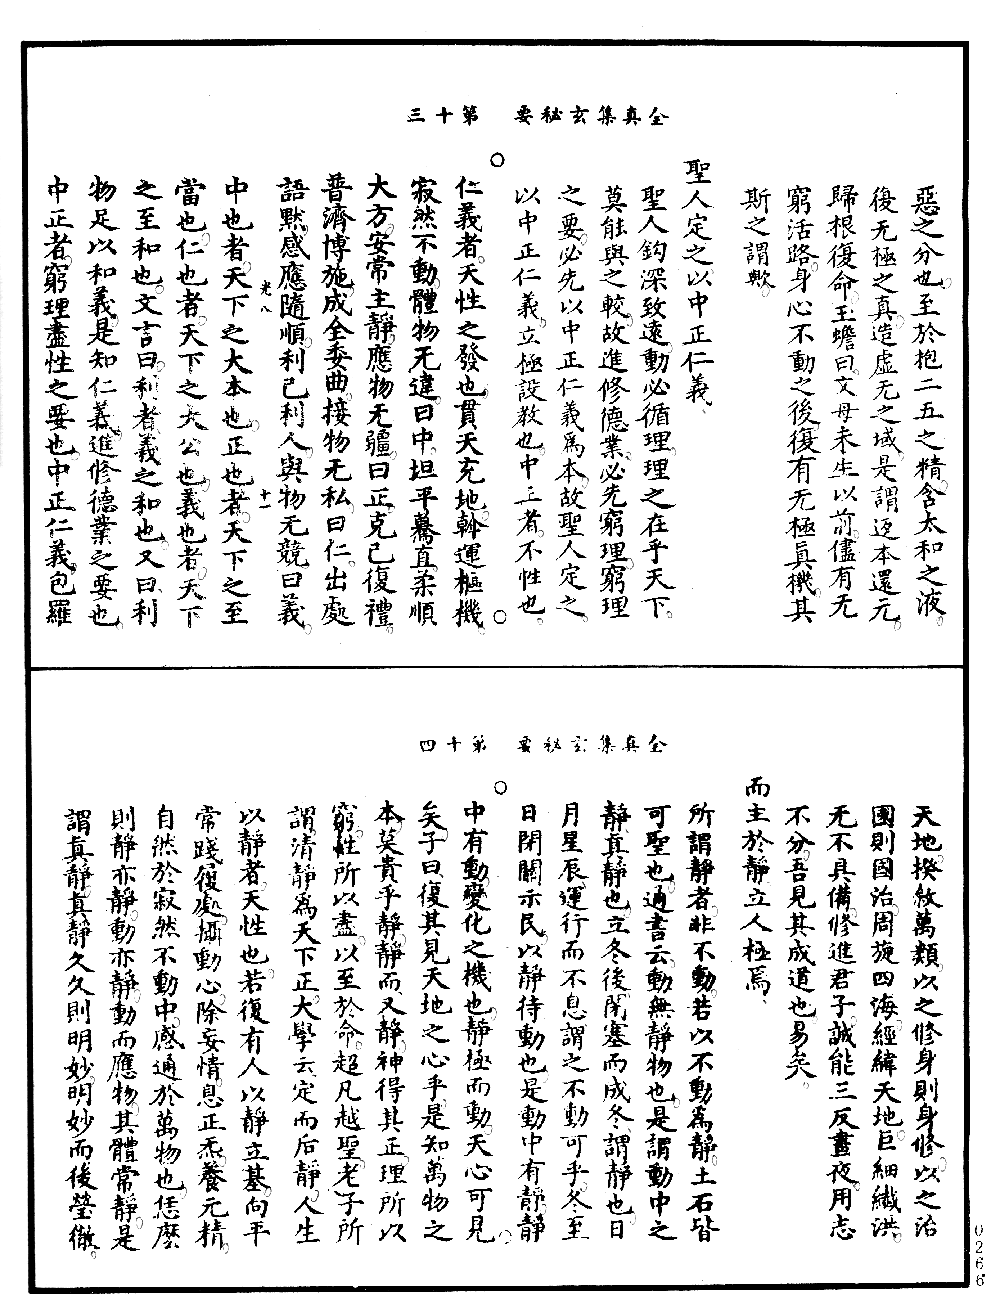 全真集玄秘要　第十三
惡之分也至於抱二五之精含太和之液
後无極之真造虛无之域是謂返本還元
歸根復命玉蟾曰父母未生以前儘有无
窮活路身心不動之後復有无極眞機其
斯之謂歟
聖人定之以中正仁義
聖人鈎深致遠動必循理理之在乎天下
莫能與之較故進修德業必先窮理窮理
之要必先以中正仁義爲本故聖人定之
以中正仁義立極設教也中正者不性也
仁義者天性之發也貫天充地斡運樞機
寂然不動體物无違曰中坦平驀直柔順
大方安常主靜應物无疆曰正克己復禮
普濟博施成全委曲接物无私曰仁出處
語黙感應隨順利己利人與物无競曰義
光八　十一
中也者天下之大本也正也者天下之至
當也仁也者天下之大公也義也者天下
之至和也文言曰利者義之和也又曰利
物足以和義是知仁義進修德業之要也
中正者窮理盡性之要也中正仁義包羅
全真集玄秘要　第十四
天地揆敘萬類以之修身則身修以之治
國則國治周旋四海經緯天地巨細纖洪
无不具備修進君子誠能三反晝夜用志
不分吾見其成道也易矣
而主於靜立人極焉
所謂靜者非不動若以不動爲靜土石皆
可聖也通書云動無靜物也是謂動中之
靜真靜也立冬後閉塞而成冬謂靜也日
月星辰運行而不息謂之不動可乎冬至
日閉關示民以靜待動也是動中有靜靜
中有動變化之機也靜極而動天心可見
矣子曰復其見天地之心乎是知萬物之
本莫貴乎靜靜而又靜神得其正理所以
窮性所以盡以至於命超凡越聖老子所
謂清靜為天下正大學云定而后靜人生
以靜者天性也若復有人以靜立基向平
常踐履處攝動心除妄情息正炁養元精
自然於寂然不動中感通於萬物也恁麽
則靜亦靜動亦靜動而應物其體常靜是
謂真靜真靜久久則明妙明妙而後瑩徹
0266